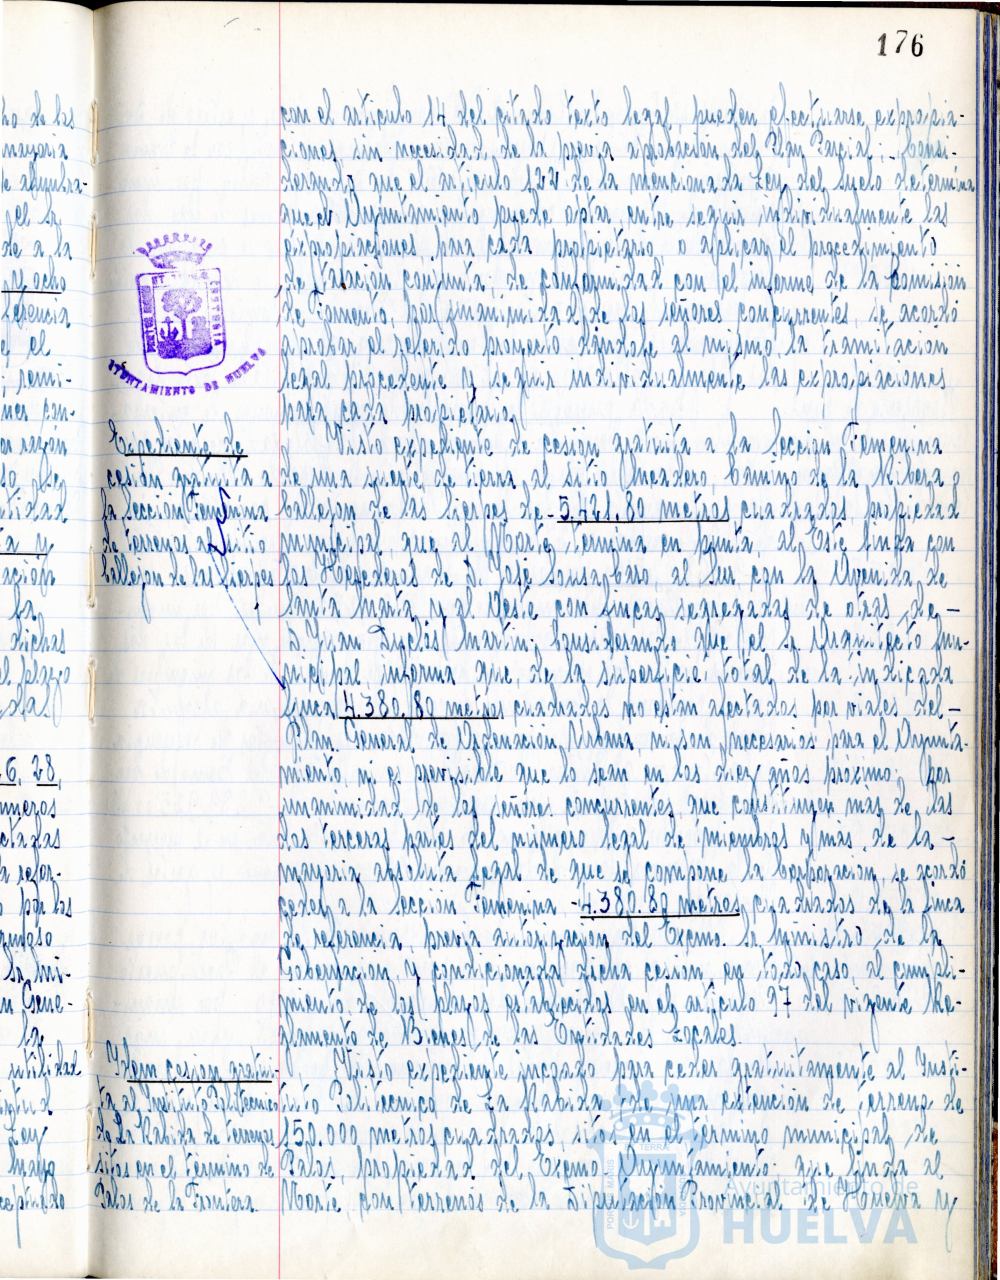 176
con el articulo 14 del citado texto legal, pueden efectuarse expropia-
ciones sin necesidad de la previa aprobación del Plan Parcial; Consi-
derando que el articulo 122 de la mencionada Ley del Suelo determina
que el Ayuntamiento puede optar entre seguir individualmente las
expropiaciones para cada propietario o aplicar el procedimiento
de tasación conjunta; de conformidad con el informe de la Comisión
de Fomento, por unanimidad de los señores concurrentes, se acordó
aprobar el referido proyecto dándole al mismo la tramitación
legal procedente y seguir individualmente las expropiaciones
para cada propietario.
Expediente de
cesión gratuita a
la Sección Femenina
de terrenos al sitio
Callejon de las Sierpes
Visto expediente de cesión gratuita a la Sección Femenina
de una suerte de tierra al sitio Camino de la Ribera o
Callejon de las Sierpes de 5.421,80 metros cuadrados propiedad
municipal, que al Norte termina en punta, al Este linda con
los Herederos de D. José al Sur con la Avenida de
Santa Marta y al Oeste con fincas segregadas de otras de -
D. Juan Duclós Martin; Considerando que el Sr. Arquitecto mu-
nicipal informa que, de la superficie total de la indicada
finca 4.380,80 metros cuadrados no están afectados por viales del -
Plan General de Ordenación Urbana, ni son necesarios para el Ayunta-
miento, ni es previsible que lo sean en los diez años próximo; Por
unanimidad de los señores concurrentes, que constituyen más de las
dos terceras partes del número legal de miembros y más de la -
mayoria absoluta legal de que se compone la Corporación, se acordó
ceder a la Sección Femenina -4.380,80 metros cuadrados de la finca
de referencia, previa autorización del Excmo. Sr. Ministro de la
Gobernación, y condicionada dicha cesión en todo caso, al cumpli-
miento de los plazos establecidos en el artículo 97 del vigente Re-
glamento de Bienes de las Entidades Locales.
Idem cesion gratui-
ta al Instituto Politecnico
de La Rabida de terrenos
sitos en el término de
Palos de la Frontera.
Visto expediente incoado para ceder gratuitamente al Insti-
tuto Politecnico de La Rabida de una extención de terreno de
150.000 metros cuadrados, sitos en el término municipal de
Palos, propiedad del Excmo. Ayuntamiento que linda al
Norte con terrenos de la Diputación Provincial de Huelva y
AYUNTAMIENTO DE HUELVA
Ayuntamiento de
HUELVA